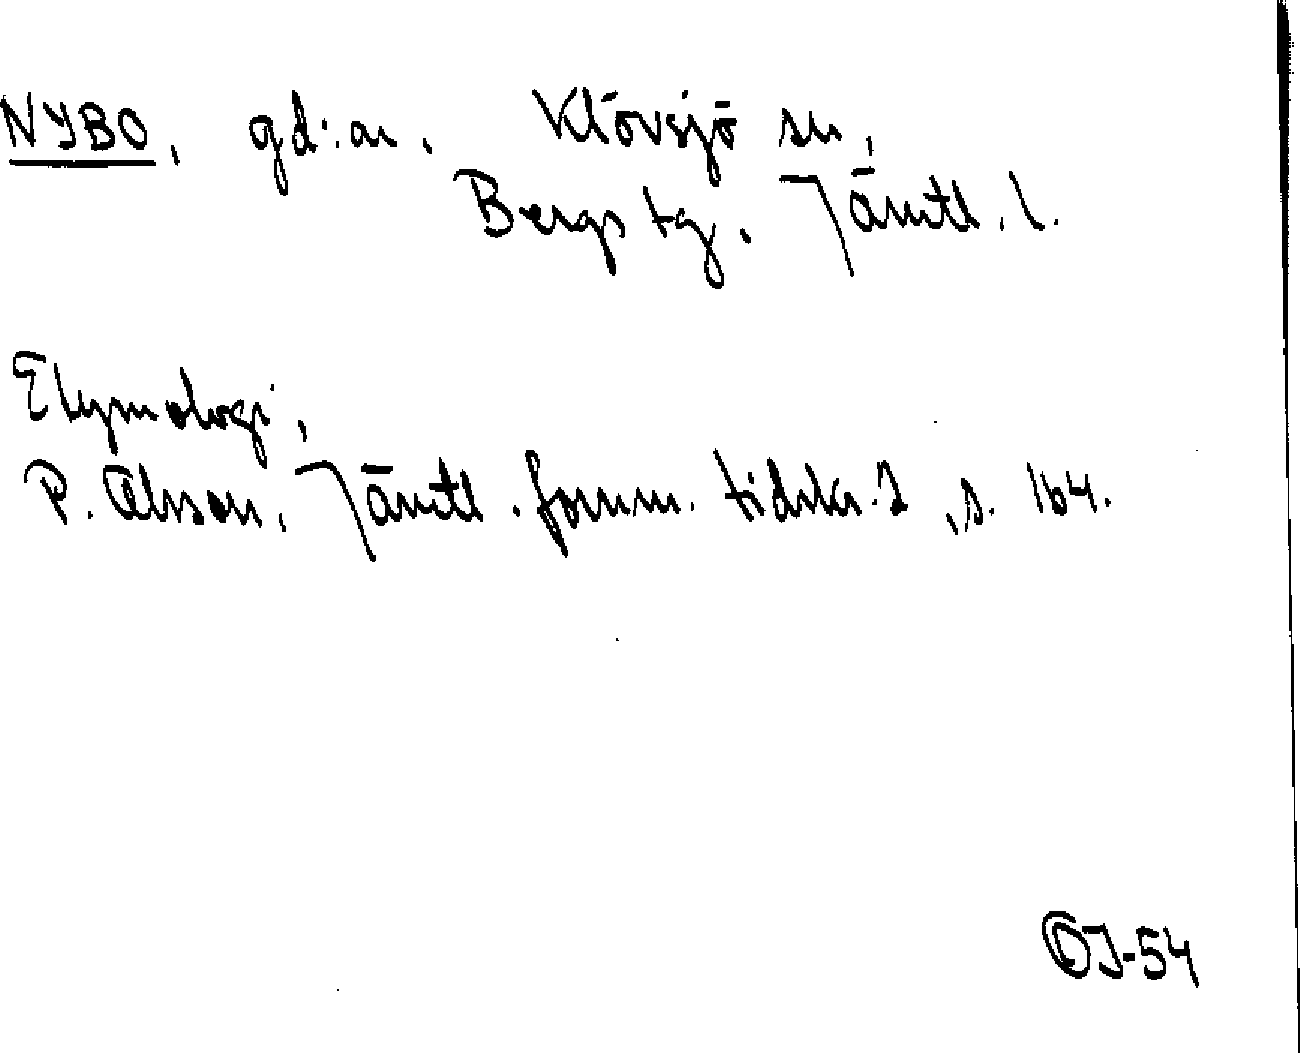 NYBO, gd:ar. Klövsjö sn,
Bergs tg. Jämtl. l.
Etymologi,
P. Olsson, Jämtl. fornm. tidskr. 2, s. 164.
OJ-54